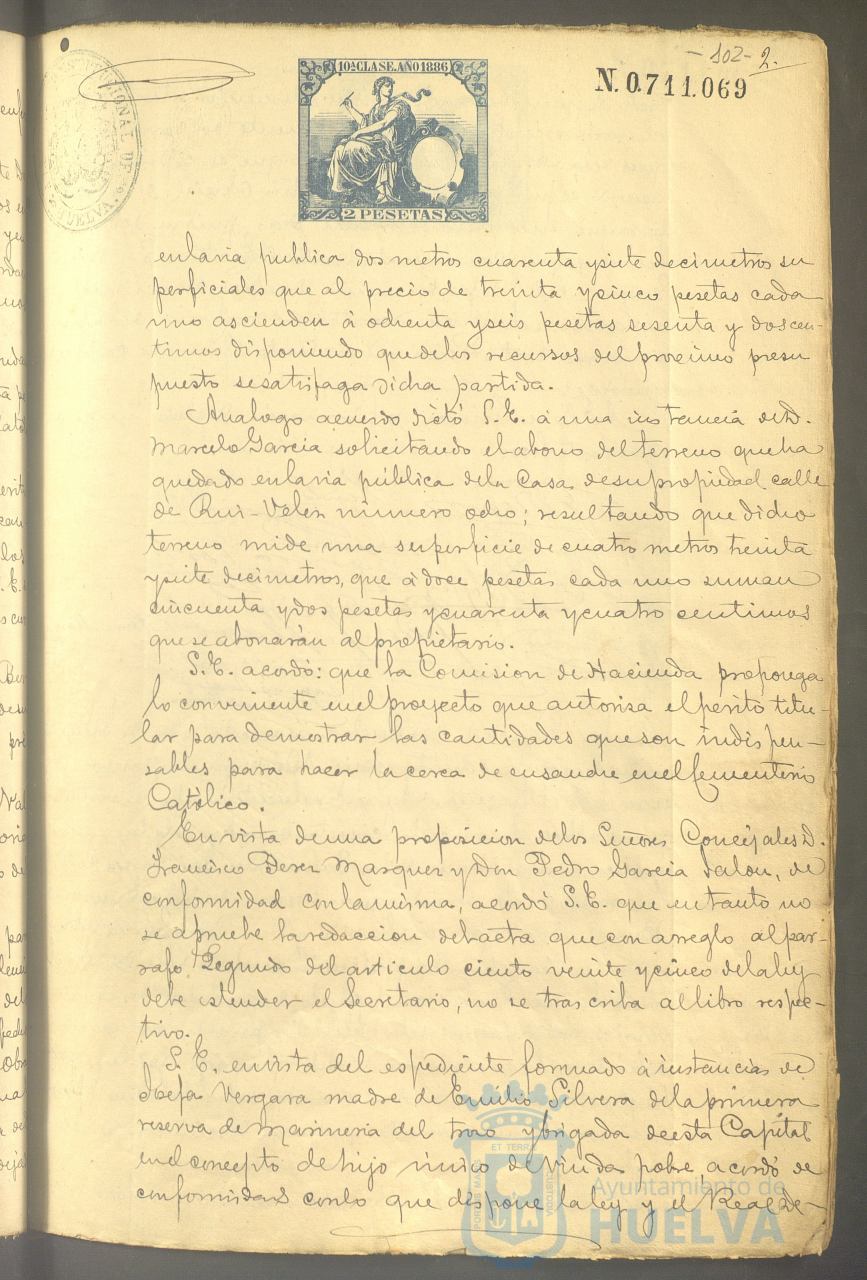 - 102 - 2.
10ª CLASE. AÑO 1886
N. 0.711.069
2 PESETAS
HUELVA
en la via publica dos metros cuarenta y siete decimetros su
perficiales que al precio de treinta y cinco pesetas cada
uno ascienden á ochenta y seis pesetas sesenta y dos cen-
timos disponiendo que de los recursos del procsimo presu
puesto se satisfaga dicha partida.
Analogo acuerdo dictó S.E. á una instancia de D.
Marcelo Garcia solicitando el abono del terreno que ha
quedado en la via pública de la Casa de su propiedad calle
de Rui-Velez número ocho; resultando que dicho
terreno mide una superficie de cuatro metros treinta
y siete decimetros, que á doce pesetas cada uno suman
cincuenta y dos pesetas y cuarenta y cuatro centimos
que se abonarán al propietario.
S.E. acordó: que la Comision de Hacienda proponga
lo conveniente en el proyecto que autoriza el perito titu-
lar para demostrar las cantidades que son indispen-
sables para hacer la cerca de ensanche en el Cementerio
Católico.
En vista de una proposicion de los Señores Concejales D.
Francisco Perez Marquez y Don Pedro Garcia Jalon, de
conformidad con la misma, acordó S.E. que en tanto no
se apruebe la redaccion del acta que con arreglo al par-
rafo Segundo del articulo ciento veinte y cinco de la ley
debe estender el Secretario, no se trascriba al libro respec-
tivo.
S.E. en vista del espediente formado á instancias de
Josefa Vergara madre de Emilio Silvera de la primera
reserva de marineria del trozo y brigada de esta Capital
en el concepto de hijo único de viuda pobre acordó de
conformidad con lo que dispone la ley y el Real De-
Ayuntamiento de
HUELVA